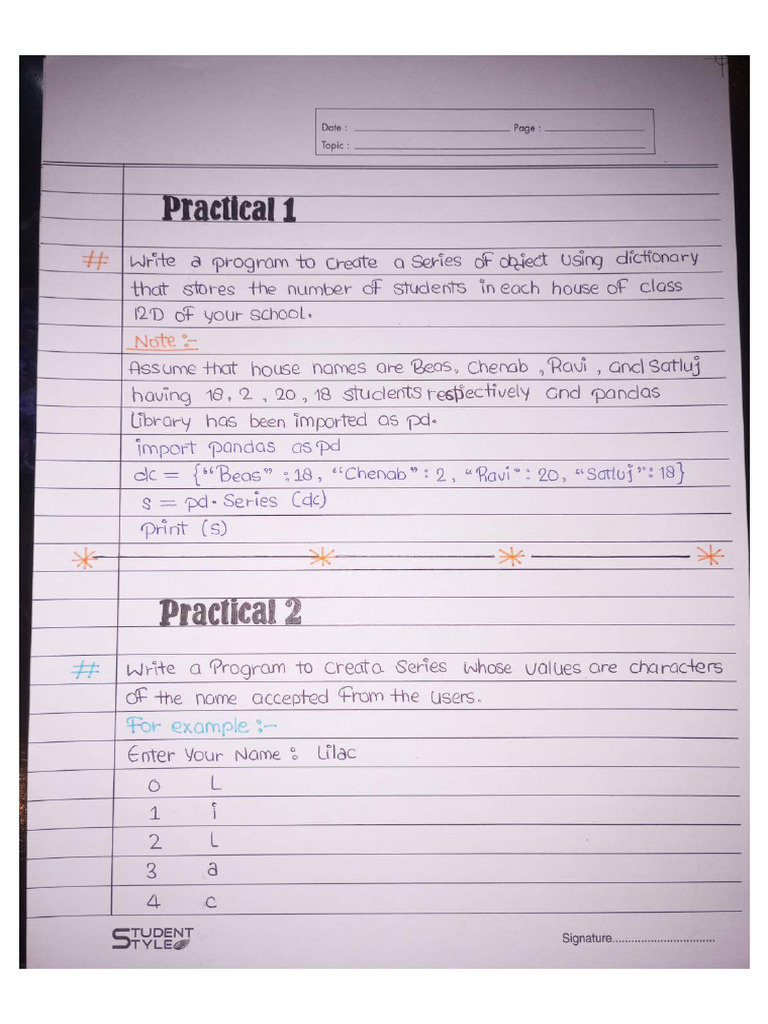 Date : Page :
Topic :
Practical 1
# Write a program to create a series of object using dictionary
that stores the number of students in each house of class
12D of your school.
Note :-
Assume that house names are Beas, Chenab , Ravi , and Satluj
having 18 , 2 , 20 , 18 students respectively and pandas
library has been imported as pd.
import pandas as pd
dc = {"Beas" : 18, "Chenab" : 2, "Ravi" : 20, "Satluj" : 18}
s = pd.Series (dc)
print (s)
Practical 2
# Write a Program to Creat a Series whose values are characters
of the name accepted from the users.
For example :-
Enter Your Name : Lilac
0 L
1 i
2 l
3 a
4 c
STUDENT STYLE
Signature................................